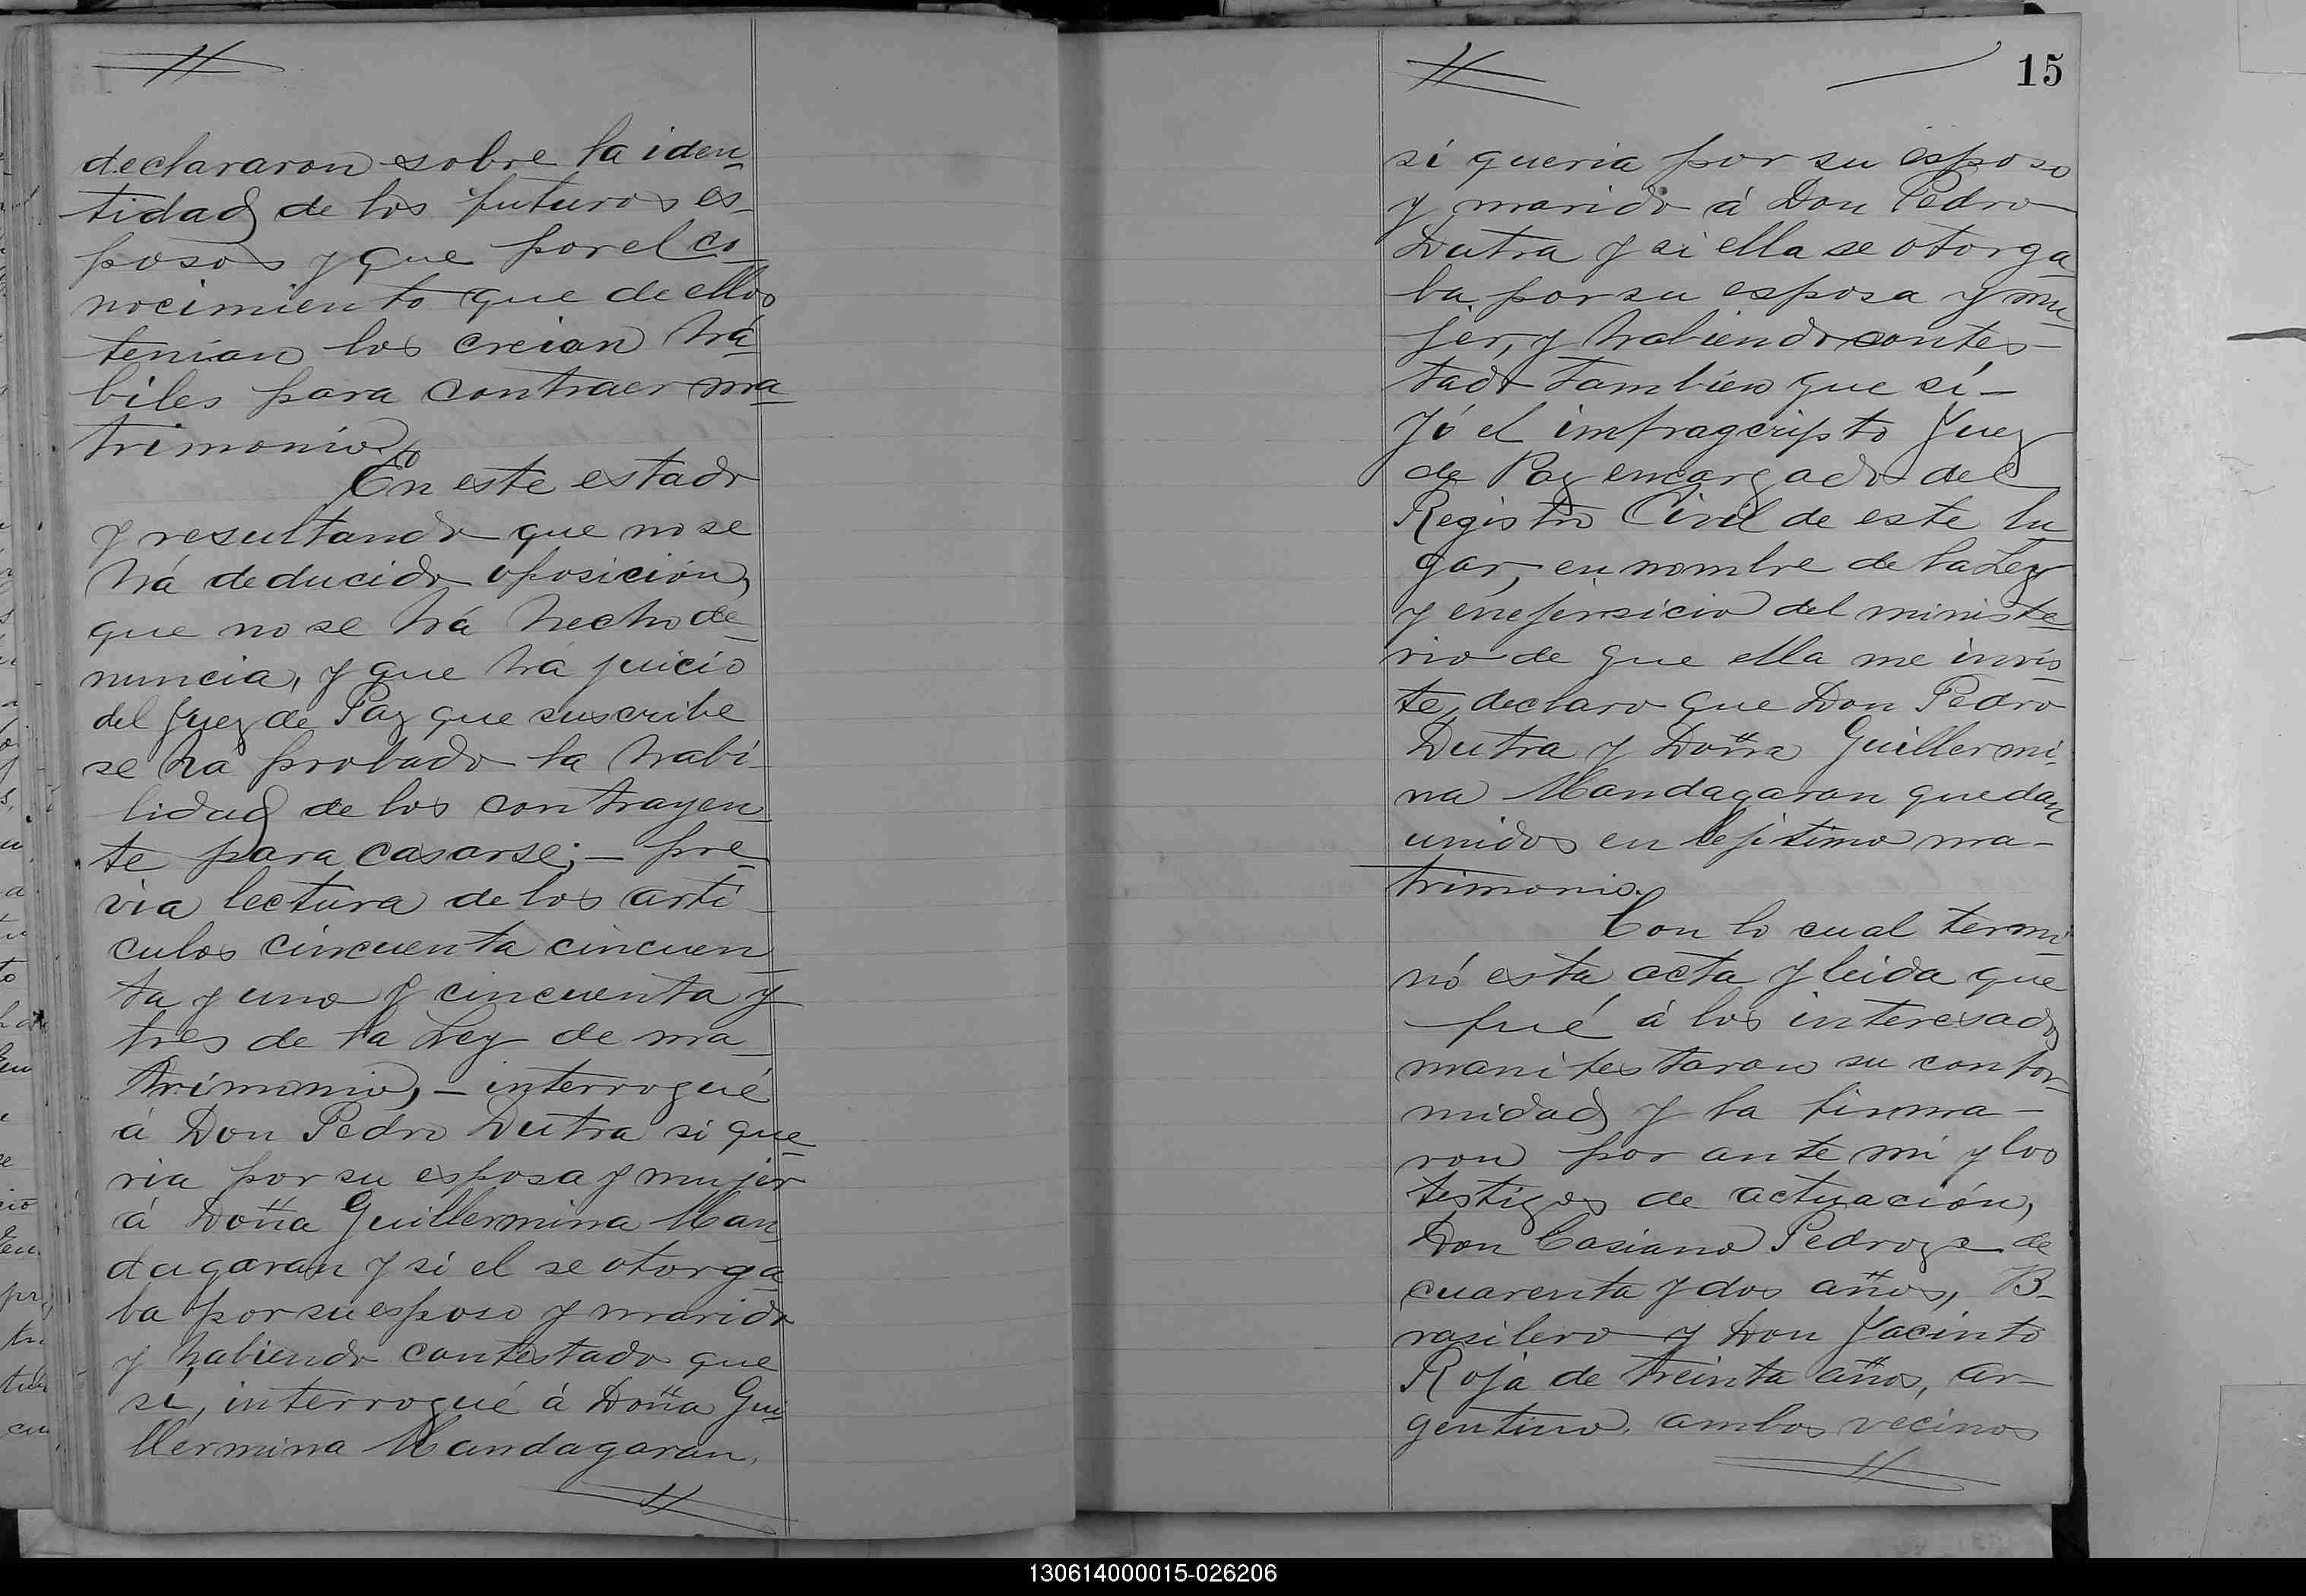 declararon sobre la iden
tidad de los futuros es-
posos y que por el co
nocimiento que de ellos
tenian los creian há
biles para contraer ma
trimonio
En este estado
y resultando que no se
há deducido oposición,
que no se há hecho de
nuncia, y que há juicio
del Juez de Paz que suscribe
se ha probado la habi
lidad de los contrayen
te para casarse; - pre
via lectura de los arti
culos cincuenta cincuen
ta y uno y cincuenta y
tres de la Ley de ma
trimonio, - interrogué
á Don Pedro Dutra si que
ria por su esposa y mujer
á Doña Guillermina Man
dagaran y si el se otorga
ba por su esposo y marido
y habiendo contestado que
si, interrogué á Doña Gui
llermina Mandagaran,
15
si queria por su esposo
y marido á Don Pedro
Dutra y si ella se otorga
ba por su esposa y mu
jer, y habiendo contes-
tado tambien que si -
Yó el infragcripto Juez
de Paz encargado del
Registro Civil de este lu
gar, en nombre de la Ley
y en ejersicio del ministe
rio de que ella me invis
te, declaro que Don Pedro
Dutra y Doña Guillermi
na Mandagaran quedan
unidos en lejitimo ma-
trimonio.
Con lo cual termi
nó esta acta y leida que
fué á los interesados
manifestaron su confor
midad y la firma-
ron por ante mi y los
testigos de actuación,
Don Casiano Pedroza de
cuarenta y dos años, B-
rasilero y Don Jacinto
Roja de treinta años, ar-
gentino, ambos vecinos
130614000015-026206